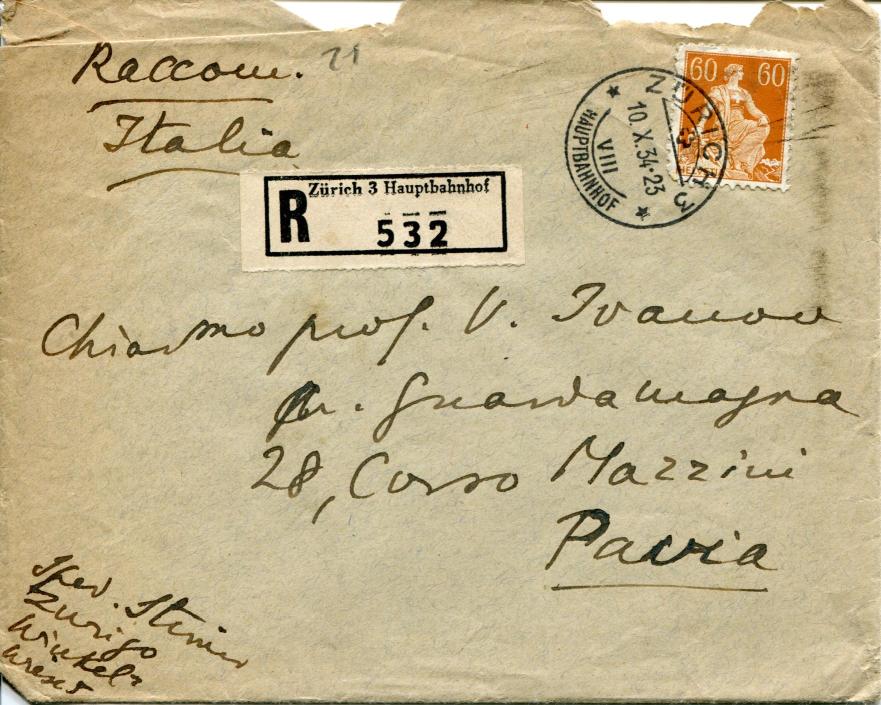 Raccom. 21
Italia
60 60
ZÜRICH 3
10.X.34-23
3
VIII
HAUPTBAHNHOF
R Zürich 3 Hauptbahnhof
532
Chiarmo prof. V. Ivanov
pr. Guardamagna
28, Corso Mazzini
Pavia
Sped. Steiner
Zurigo
Winkel
wiese 5